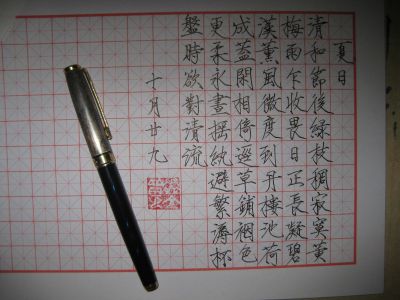 夏日
清和節後綠枝稠寂寞黃
梅雨乍收畏日正長凝碧
漢薰風微度到丹樓池荷
成蓋閑相倚逕草鋪裀色
更柔永晝搖紈避繁溽杯
盤時欲對清流
十月廿九